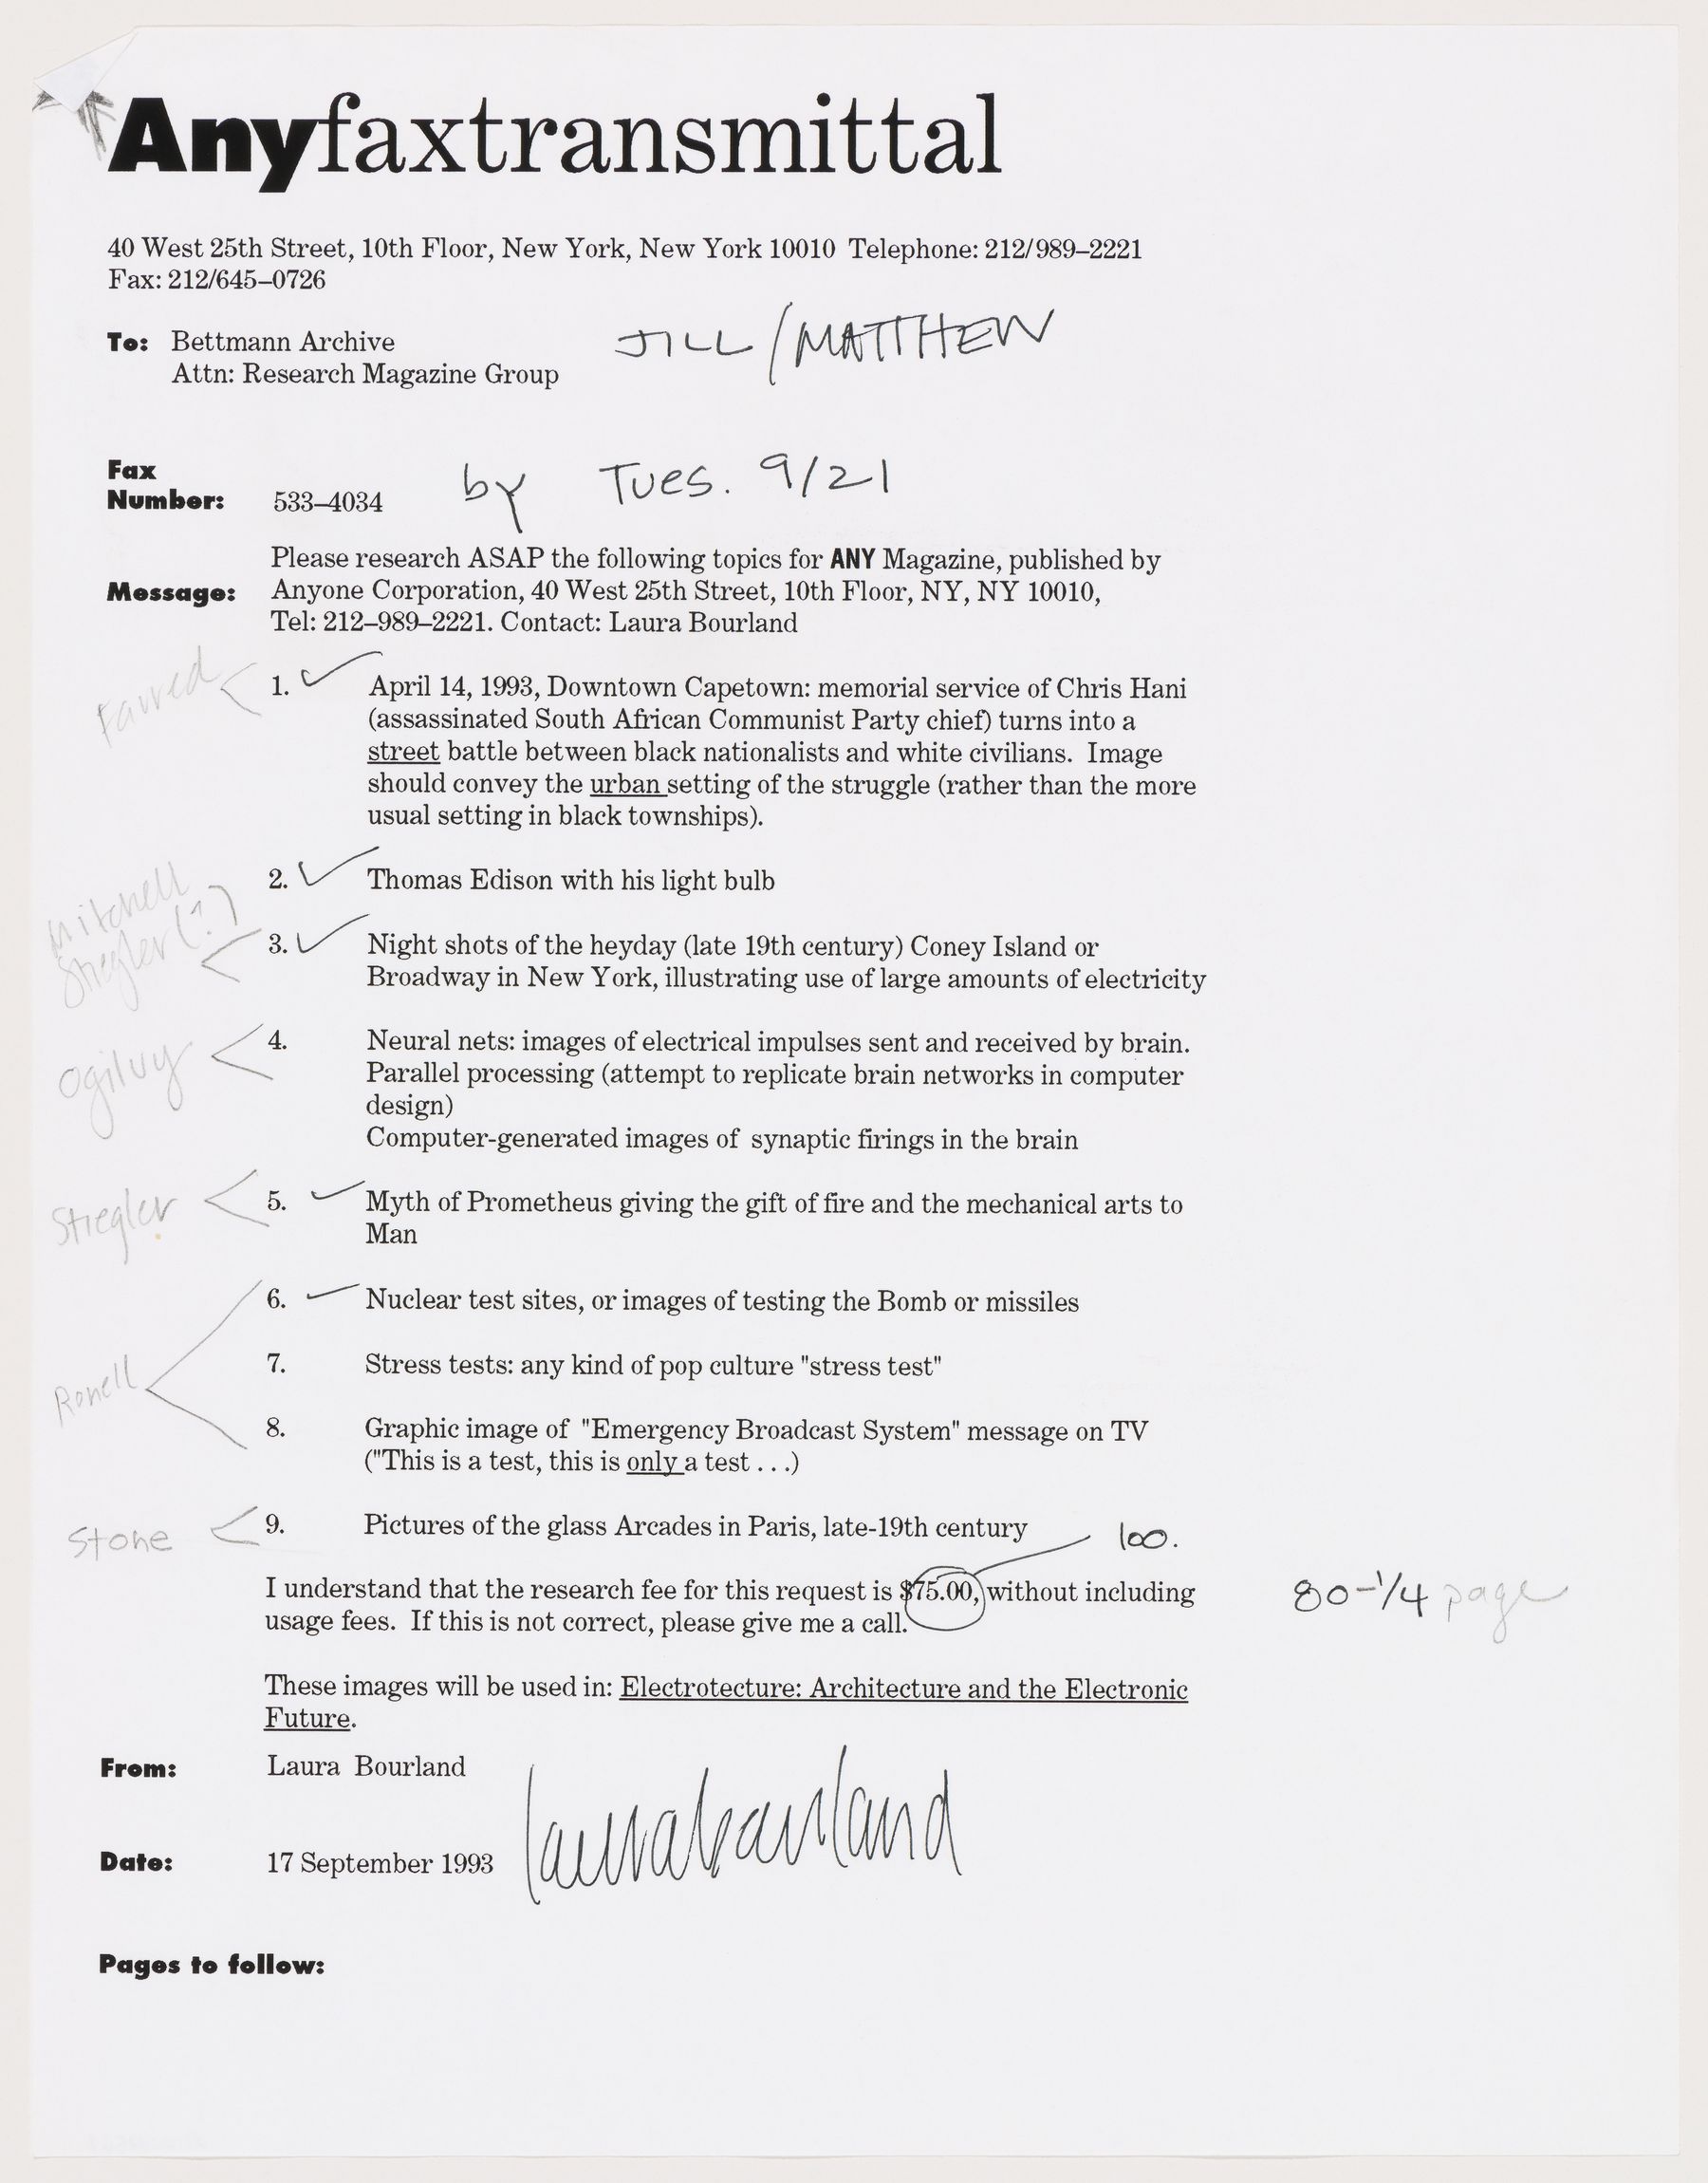 Anyfaxtransmittal
40 West 25th Street, 10th Floor, New York, New York 10010 Telephone: 212/989–2221
Fax: 212/645–0726
To: Bettmann Archive JILL/MATTHEW
Attn: Research Magazine Group
Fax
Number: 533–4034 by Tues. 9/21
Please research ASAP the following topics for ANY Magazine, published by
Message: Anyone Corporation, 40 West 25th Street, 10th Floor, NY, NY 10010,
Tel: 212–989–2221. Contact: Laura Bourland
1. April 14, 1993, Downtown Capetown: memorial service of Chris Hani
(assassinated South African Communist Party chief) turns into a
street battle between black nationalists and white civilians. Image
should convey the urban setting of the struggle (rather than the more
usual setting in black townships).
2. Thomas Edison with his light bulb
Mitchell
Stiegler (?)
3. Night shots of the heyday (late 19th century) Coney Island or
Broadway in New York, illustrating use of large amounts of electricity
Ogilvy 4. Neural nets: images of electrical impulses sent and received by brain.
Parallel processing (attempt to replicate brain networks in computer
design)
Computer-generated images of synaptic firings in the brain
Stiegler 5. Myth of Prometheus giving the gift of fire and the mechanical arts to
Man
6. Nuclear test sites, or images of testing the Bomb or missiles
Ronell 7. Stress tests: any kind of pop culture "stress test"
8. Graphic image of "Emergency Broadcast System" message on TV
("This is a test, this is only a test . . .)
Stone 9. Pictures of the glass Arcades in Paris, late-19th century 100.
I understand that the research fee for this request is $75.00, without including 80-1/4 page
usage fees. If this is not correct, please give me a call.
These images will be used in: Electrotecture: Architecture and the Electronic
Future.
From: Laura Bourland
laurabourland
Date: 17 September 1993
Pages to follow: